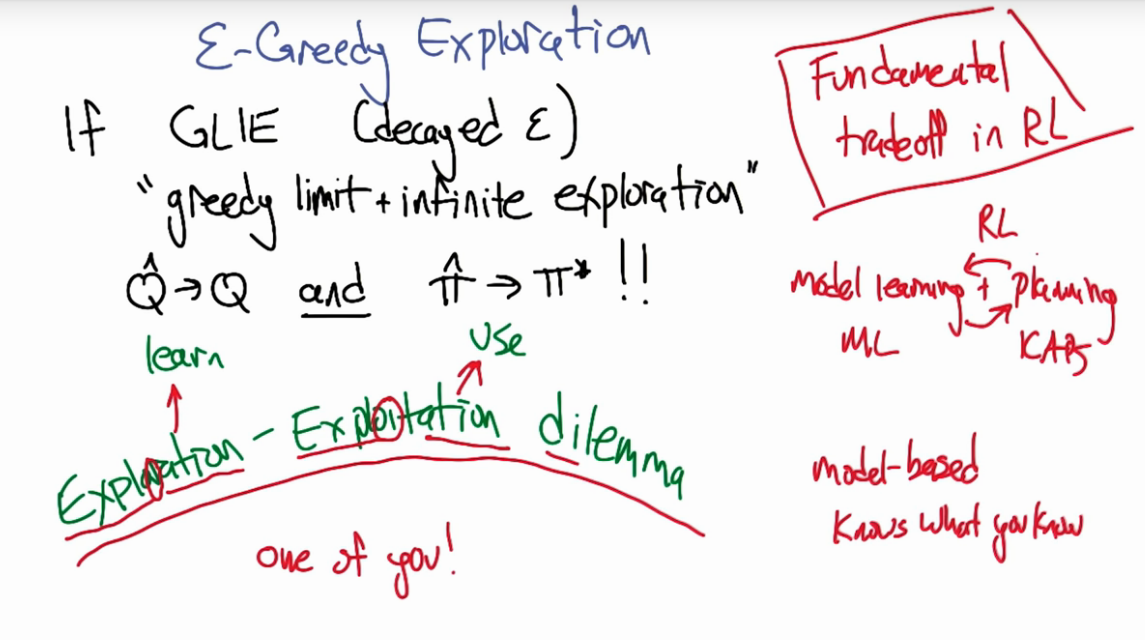 ε-Greedy Exploration
If GLIE (decayed ε)
"greedy limit + infinite exploration"
Q̂ → Q and π̂ → π* !!
learn
use
Exploration - Exploitation dilemma
one of you!
Fundamental
tradeoff in RL
RL
model learning + planning
ML
model-based
Knows what you know